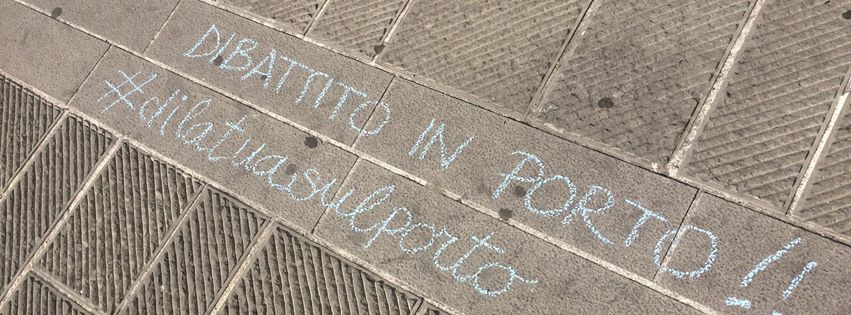 DIBATTITO IN PORTO!!
#dilatuasulporto